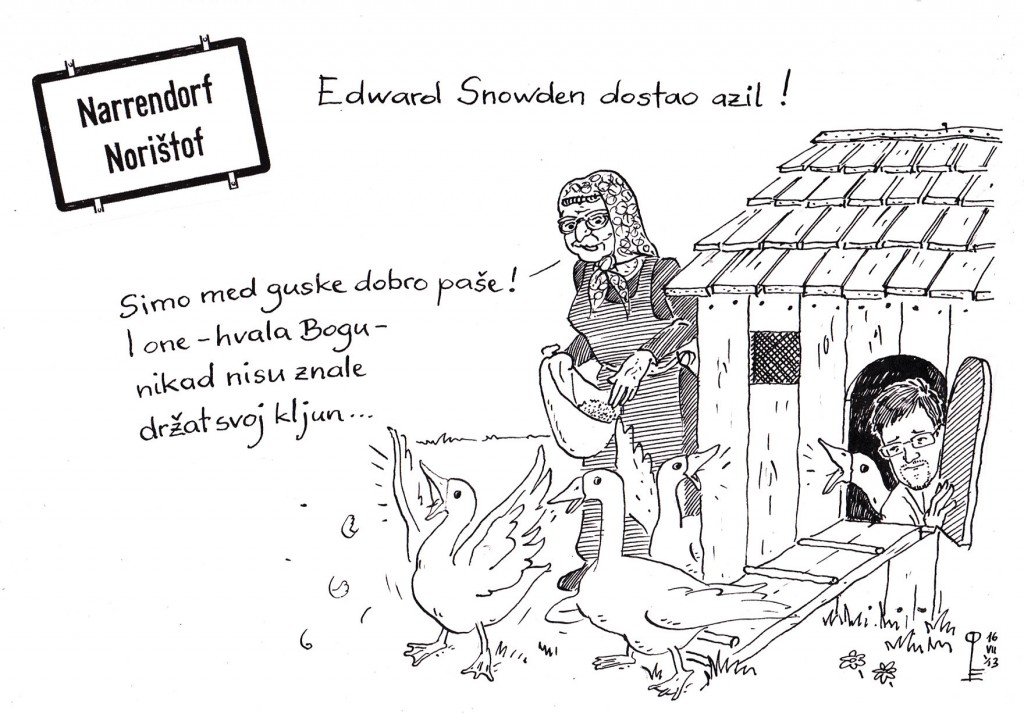 Narrendorf
Norištof
Edward Snowden dostao azil!
Simo med guske dobro paše!
I one - hvala Bogu -
nikad nisu znale
držat svoj kljun...
16
VII
'13